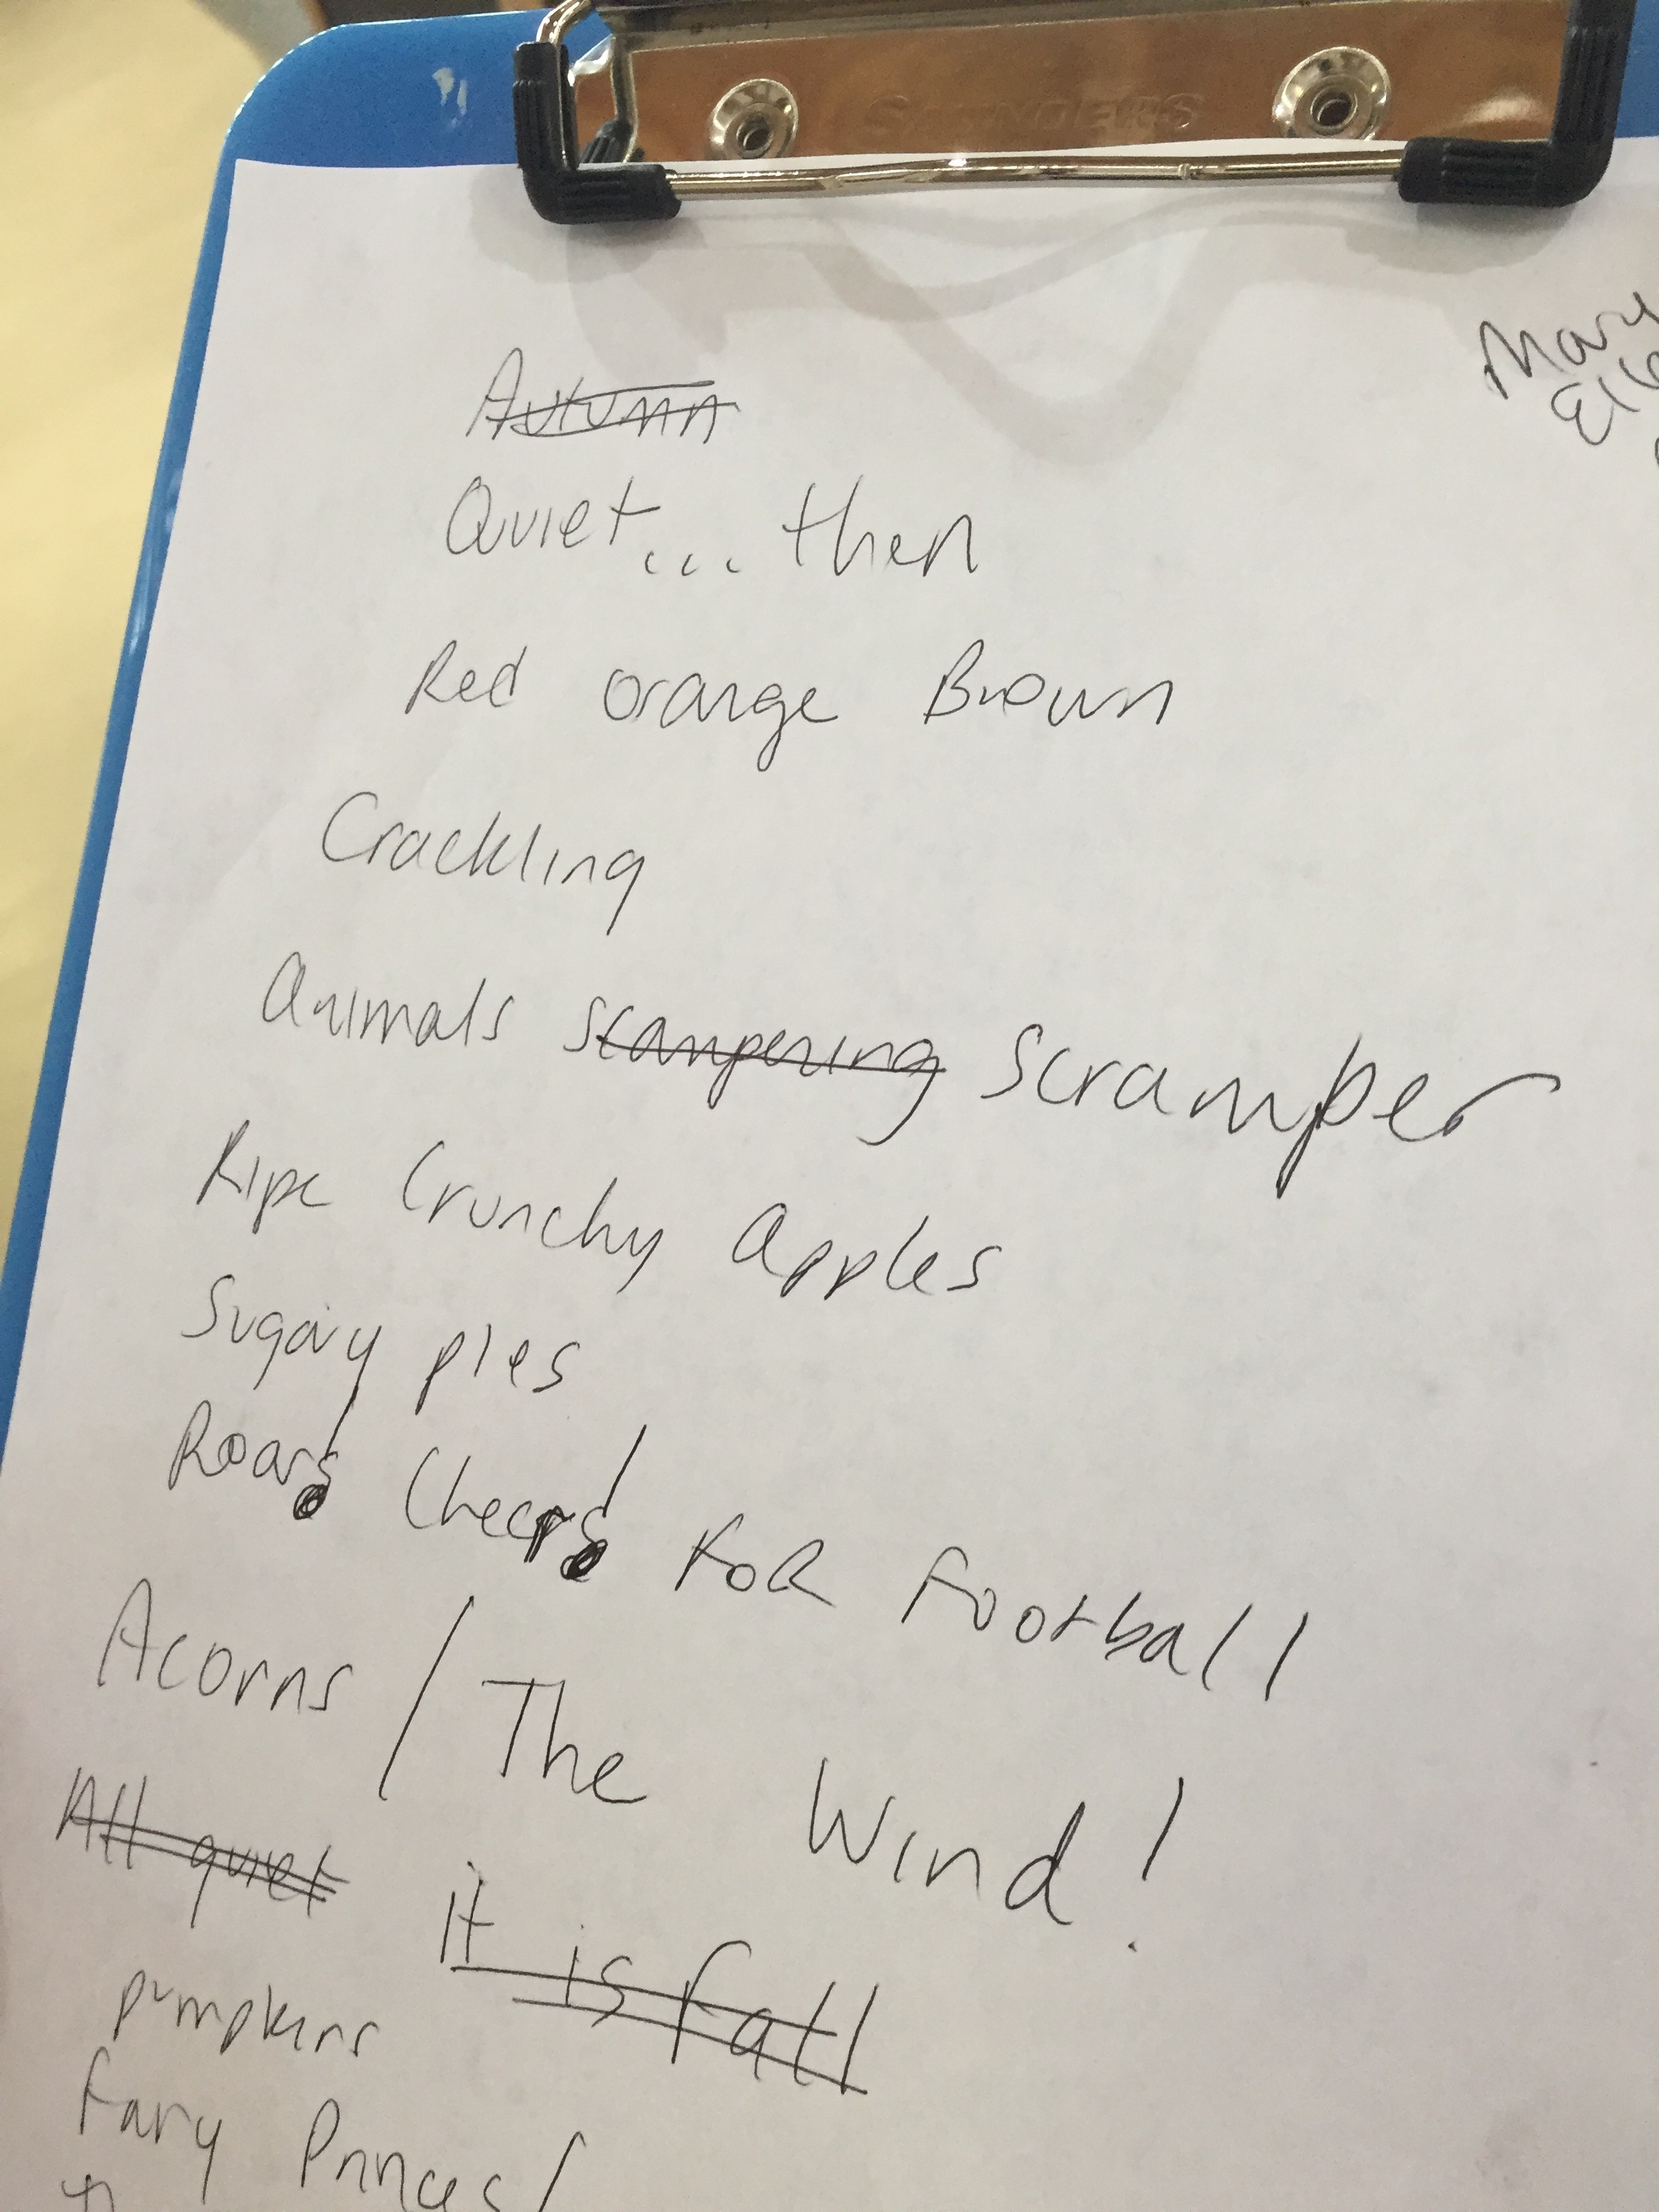 SAUNDERS
Mary
Autumn
Quiet... then
Red orange Brown
Crackling
Animals scampering Scramper
Ripe Crunchy apples
Sugary pies
Roars! Cheers! FOR Football
Acorns / The Wind!
All quiet It is fall
pumpkins
Fairy Princess/